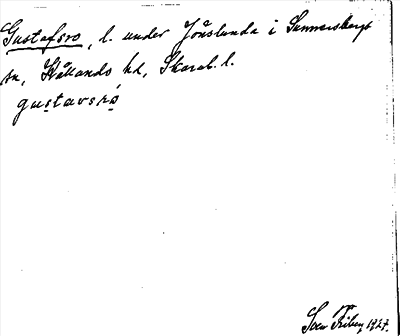 Gustafsro, l. under Jönslunda i Sunnersbergs
sn, Kållands hd, Skarab. l.
gustavsrò
Sven Friberg 1927.